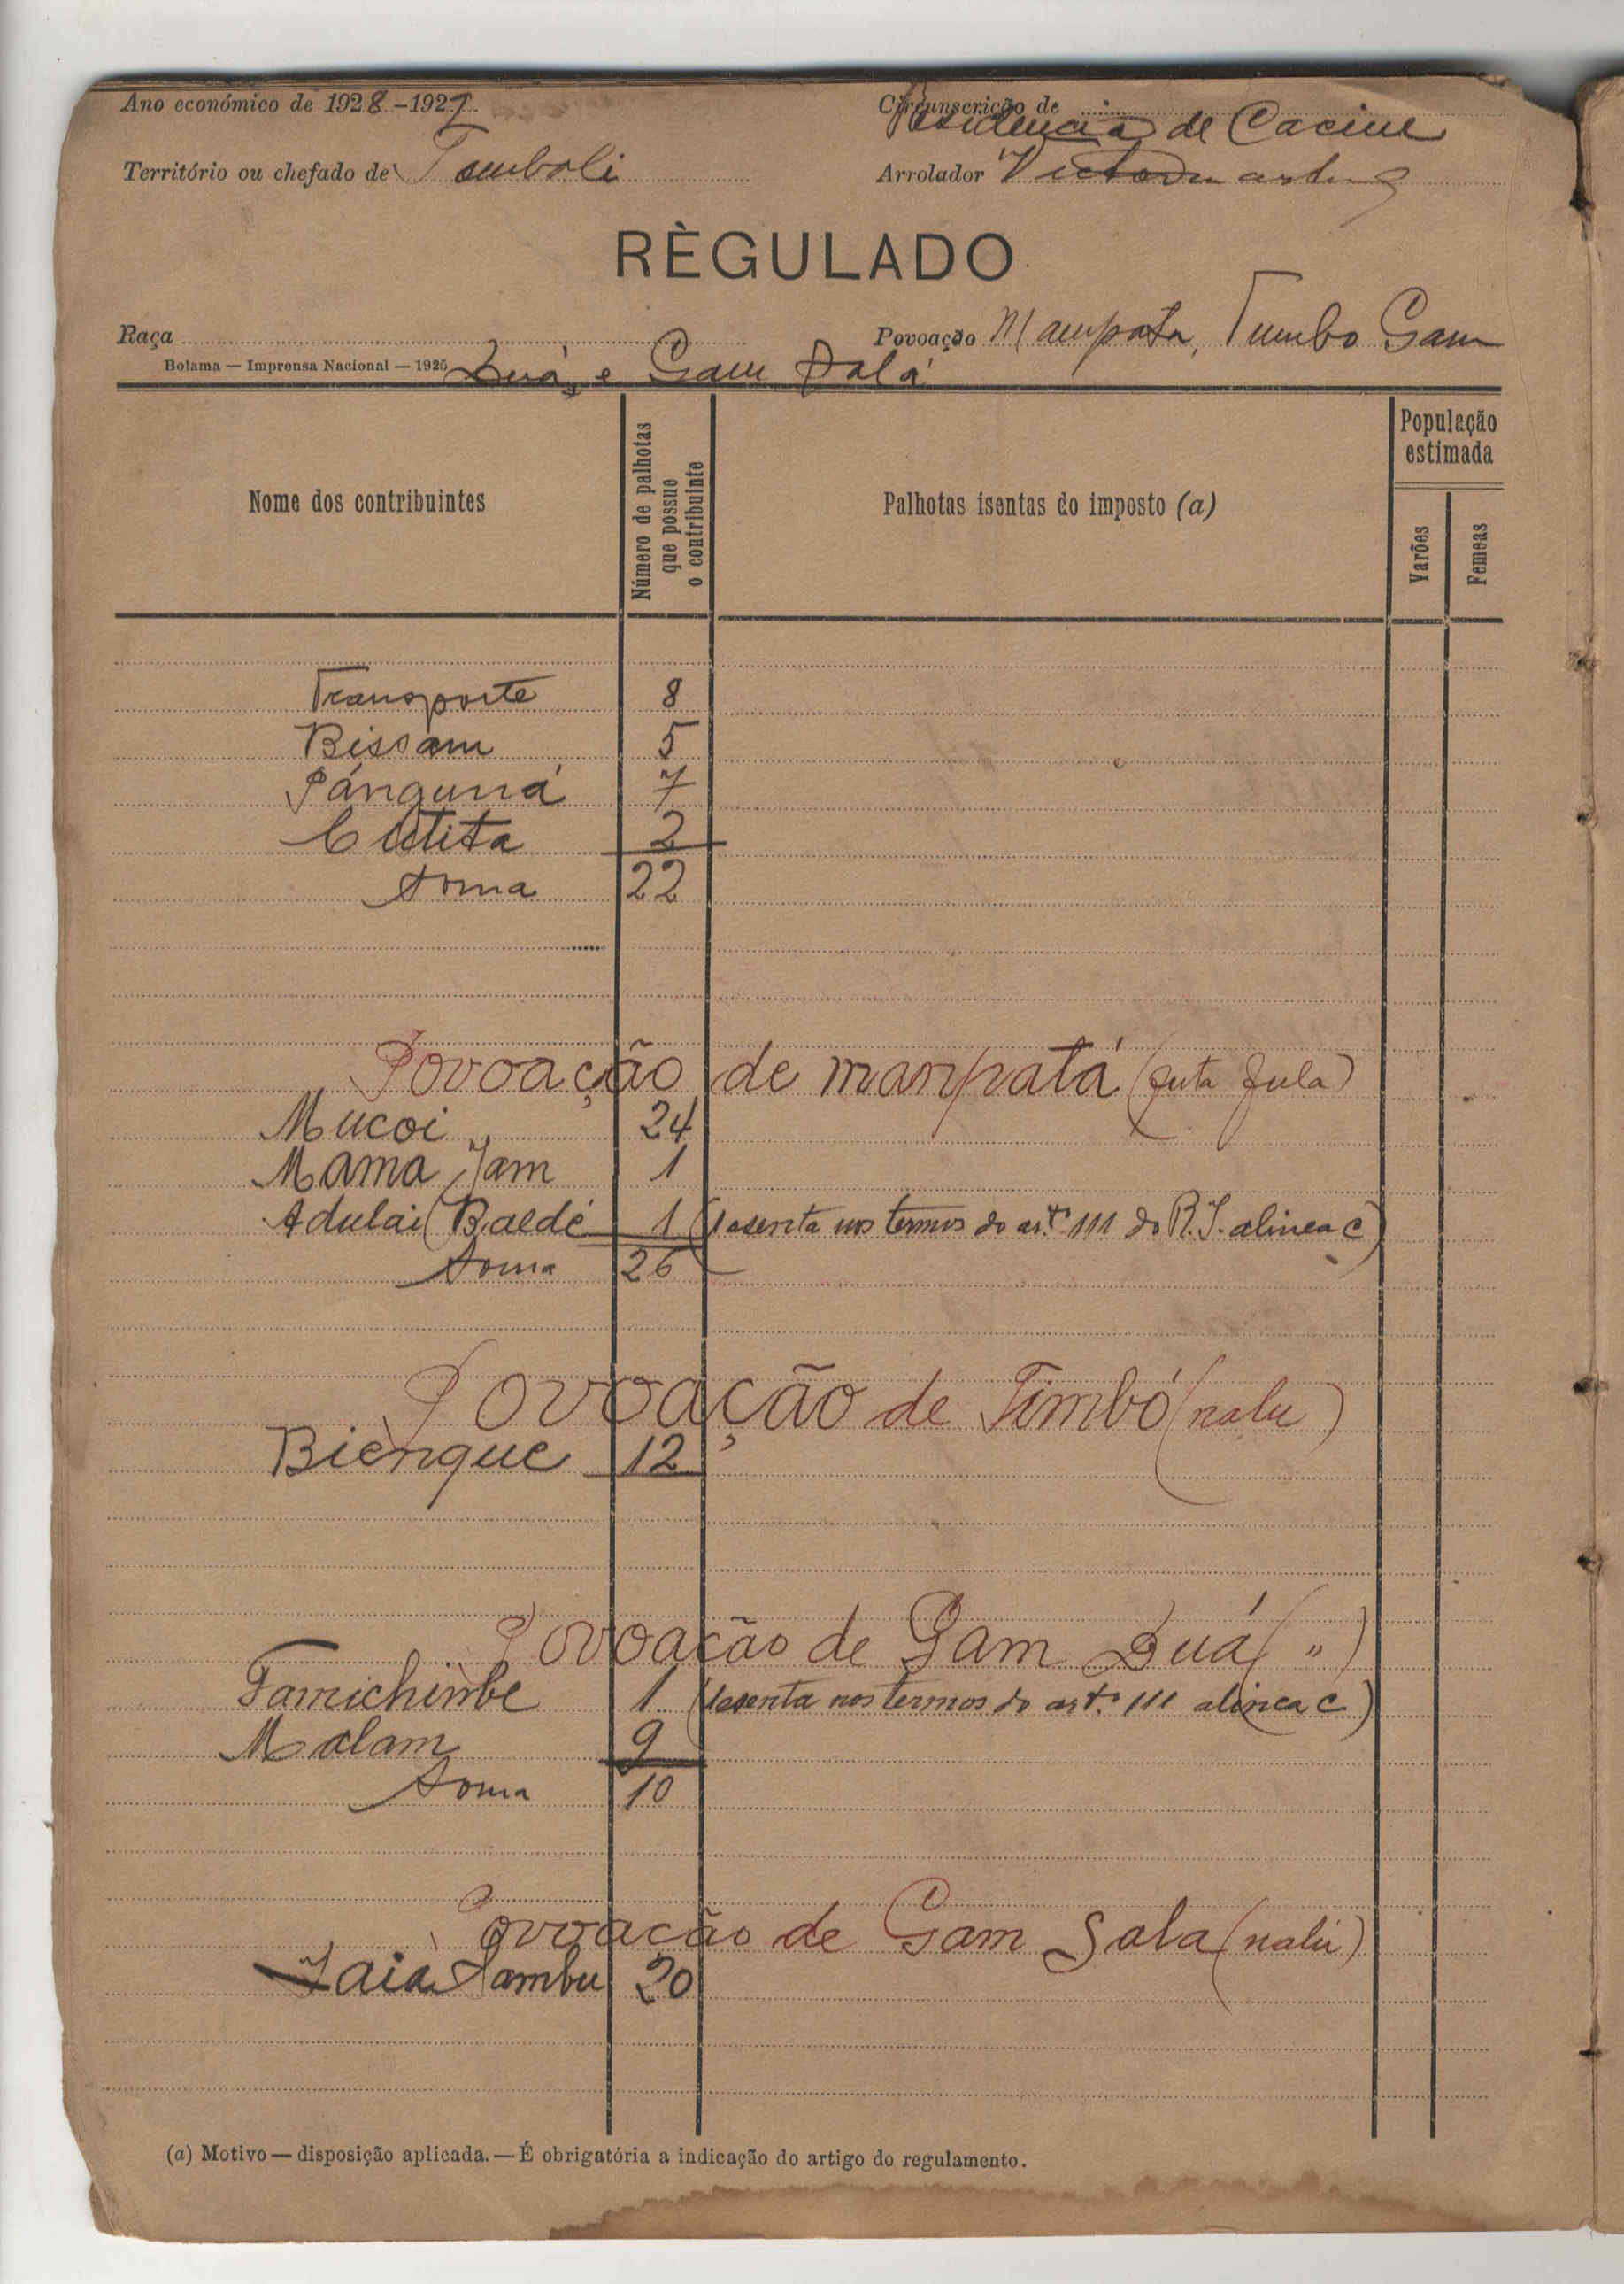 Ano económico de 1928-1929
Circunscrição de
Residencia de Cacine
Território ou chefado de Tomboli
Arrolador
RÈGULADO
Raça
Povoação Mampata, Tumbo Gam
Bolama — Imprensa Nacional — 1925
Duá, e Gam Salá
Nome dos contribuintes
Número de palhotas que possue o contribuinte
Palhotas isentas do imposto (a)
População estimada
Varões
Femeas
Transporte 8
Bissam 5
7
2
Soma 22
Povoação de manpatá (futa fula)
Mucoi 24
Mama Jam 1
Adulai Baldé 1 (Isenta nos termos do art.º 111 do R. I. alinea c)
Soma 26
Povoação de Timbó (nalu)
Biengue 12
Povoação de Gam Duá ( " )
Famichimbe 1 (Isenta nos termos do art.º 111 alinea c)
Malam 9
Soma 10
Povoacão de Gam Sala (nalú)
Jaiá Sambu 20
(a) Motivo — disposição aplicada. — É obrigatória a indicação do artigo do regulamento.